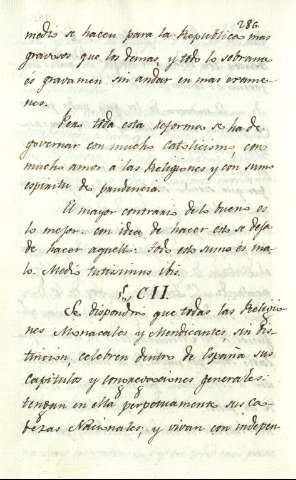 286
medio se hacen para la Republica mas
gravosos que los demas, y todo lo sobrana
es gravamen sin andar en mas exame-
nes.
Pero toda esta reforma se ha de
governar con mucho catolicismo con
mucho amor à las Religiones y con sumo
espiritu de prudencia.
El mayor contrario de lo bueno es
lo mejor. con idea de hacer esto se deja
de hacer aquello: todo esto sumo es ma-
lo. Medio tutissimus ibis.
§ CII.
Se dispondrà que todas las Religio-
nes Monacales y Mendicantes sin dis-
tincion, celebren dentro de España sus
capitulos y congregaciones generales:
tengan en ella perpetuamente sus ca-
bezas Nacionales; y vivan con indepen